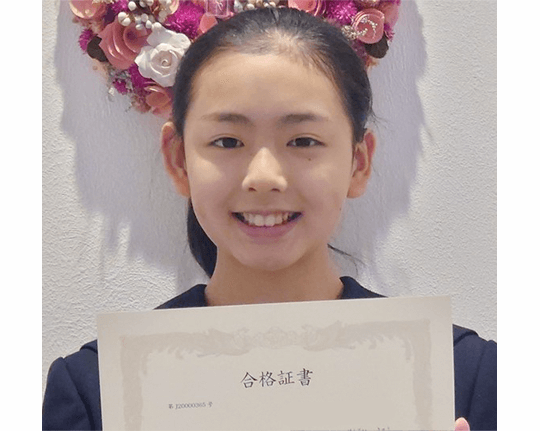 合格証書
第 J20000305 号